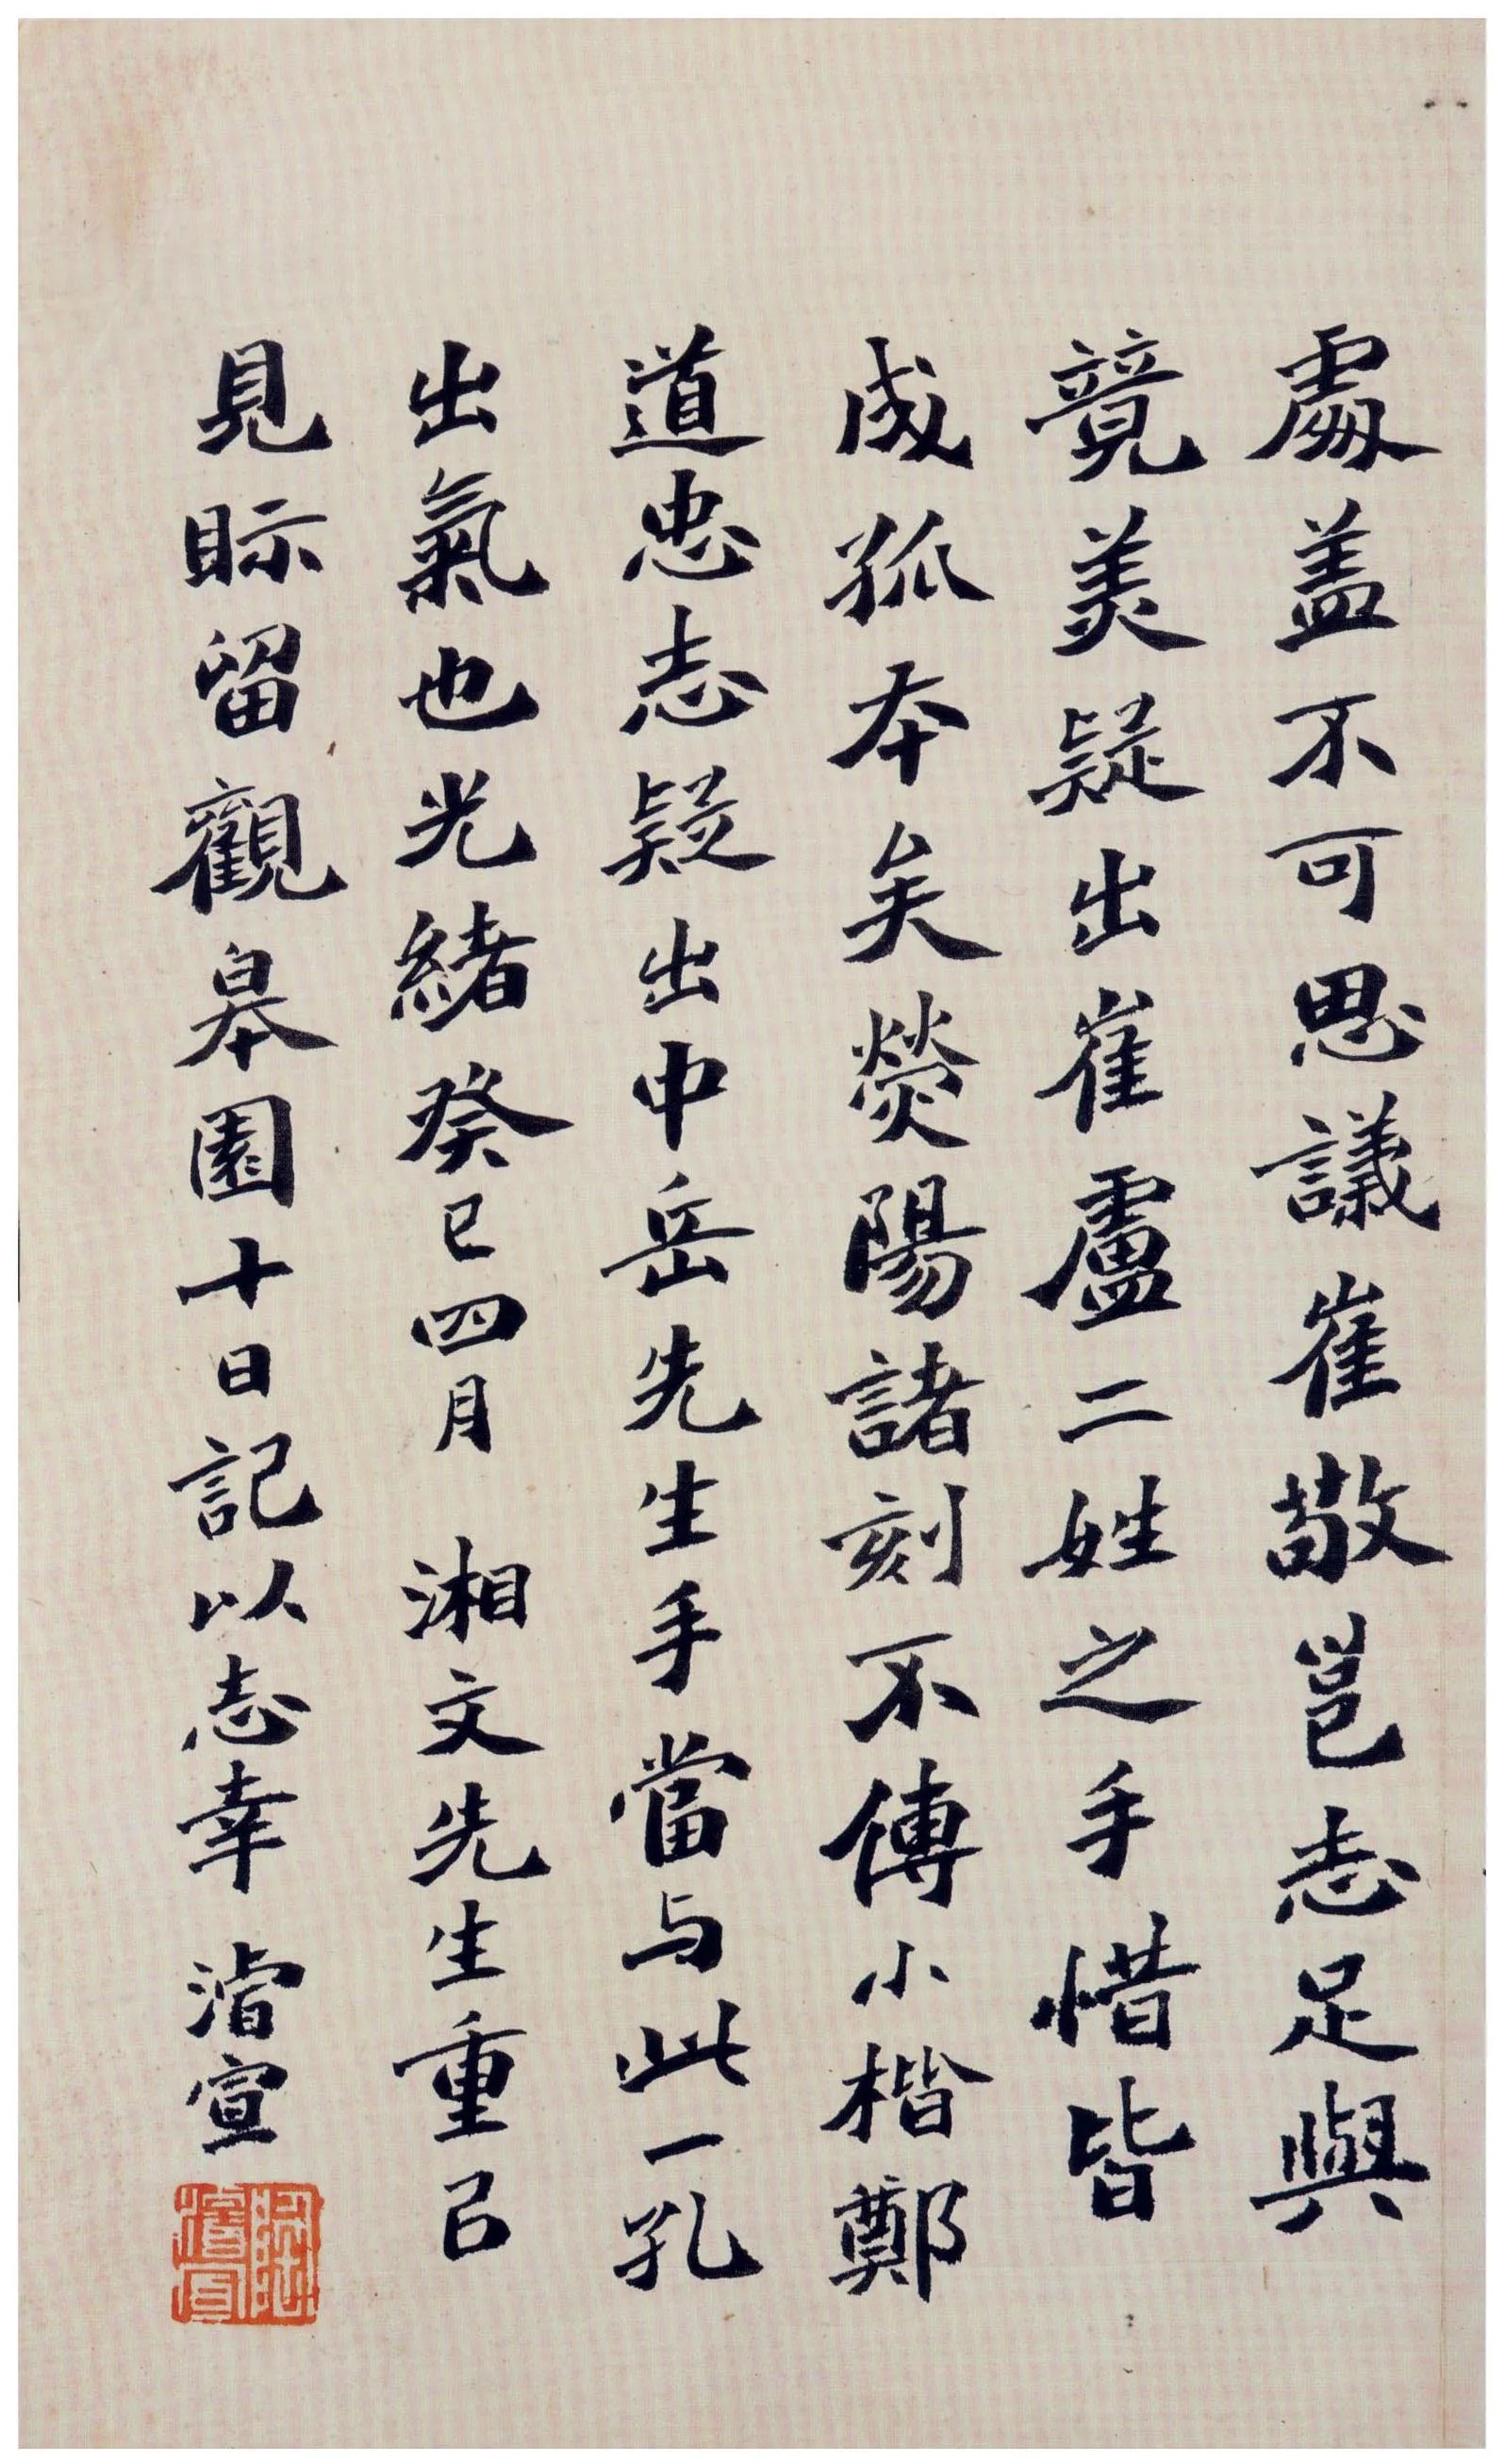 處蓋不可思議崔敬邕志足與
競美疑出崔盧二姓之手惜皆
成孤本矣熒陽諸刻不傳小楷鄭
道忠志疑出中岳先生手當与此一孔
出氣也光緒癸巳四月 湘文先生重㠯
見眎留觀皋園十日記以志幸 濬宣